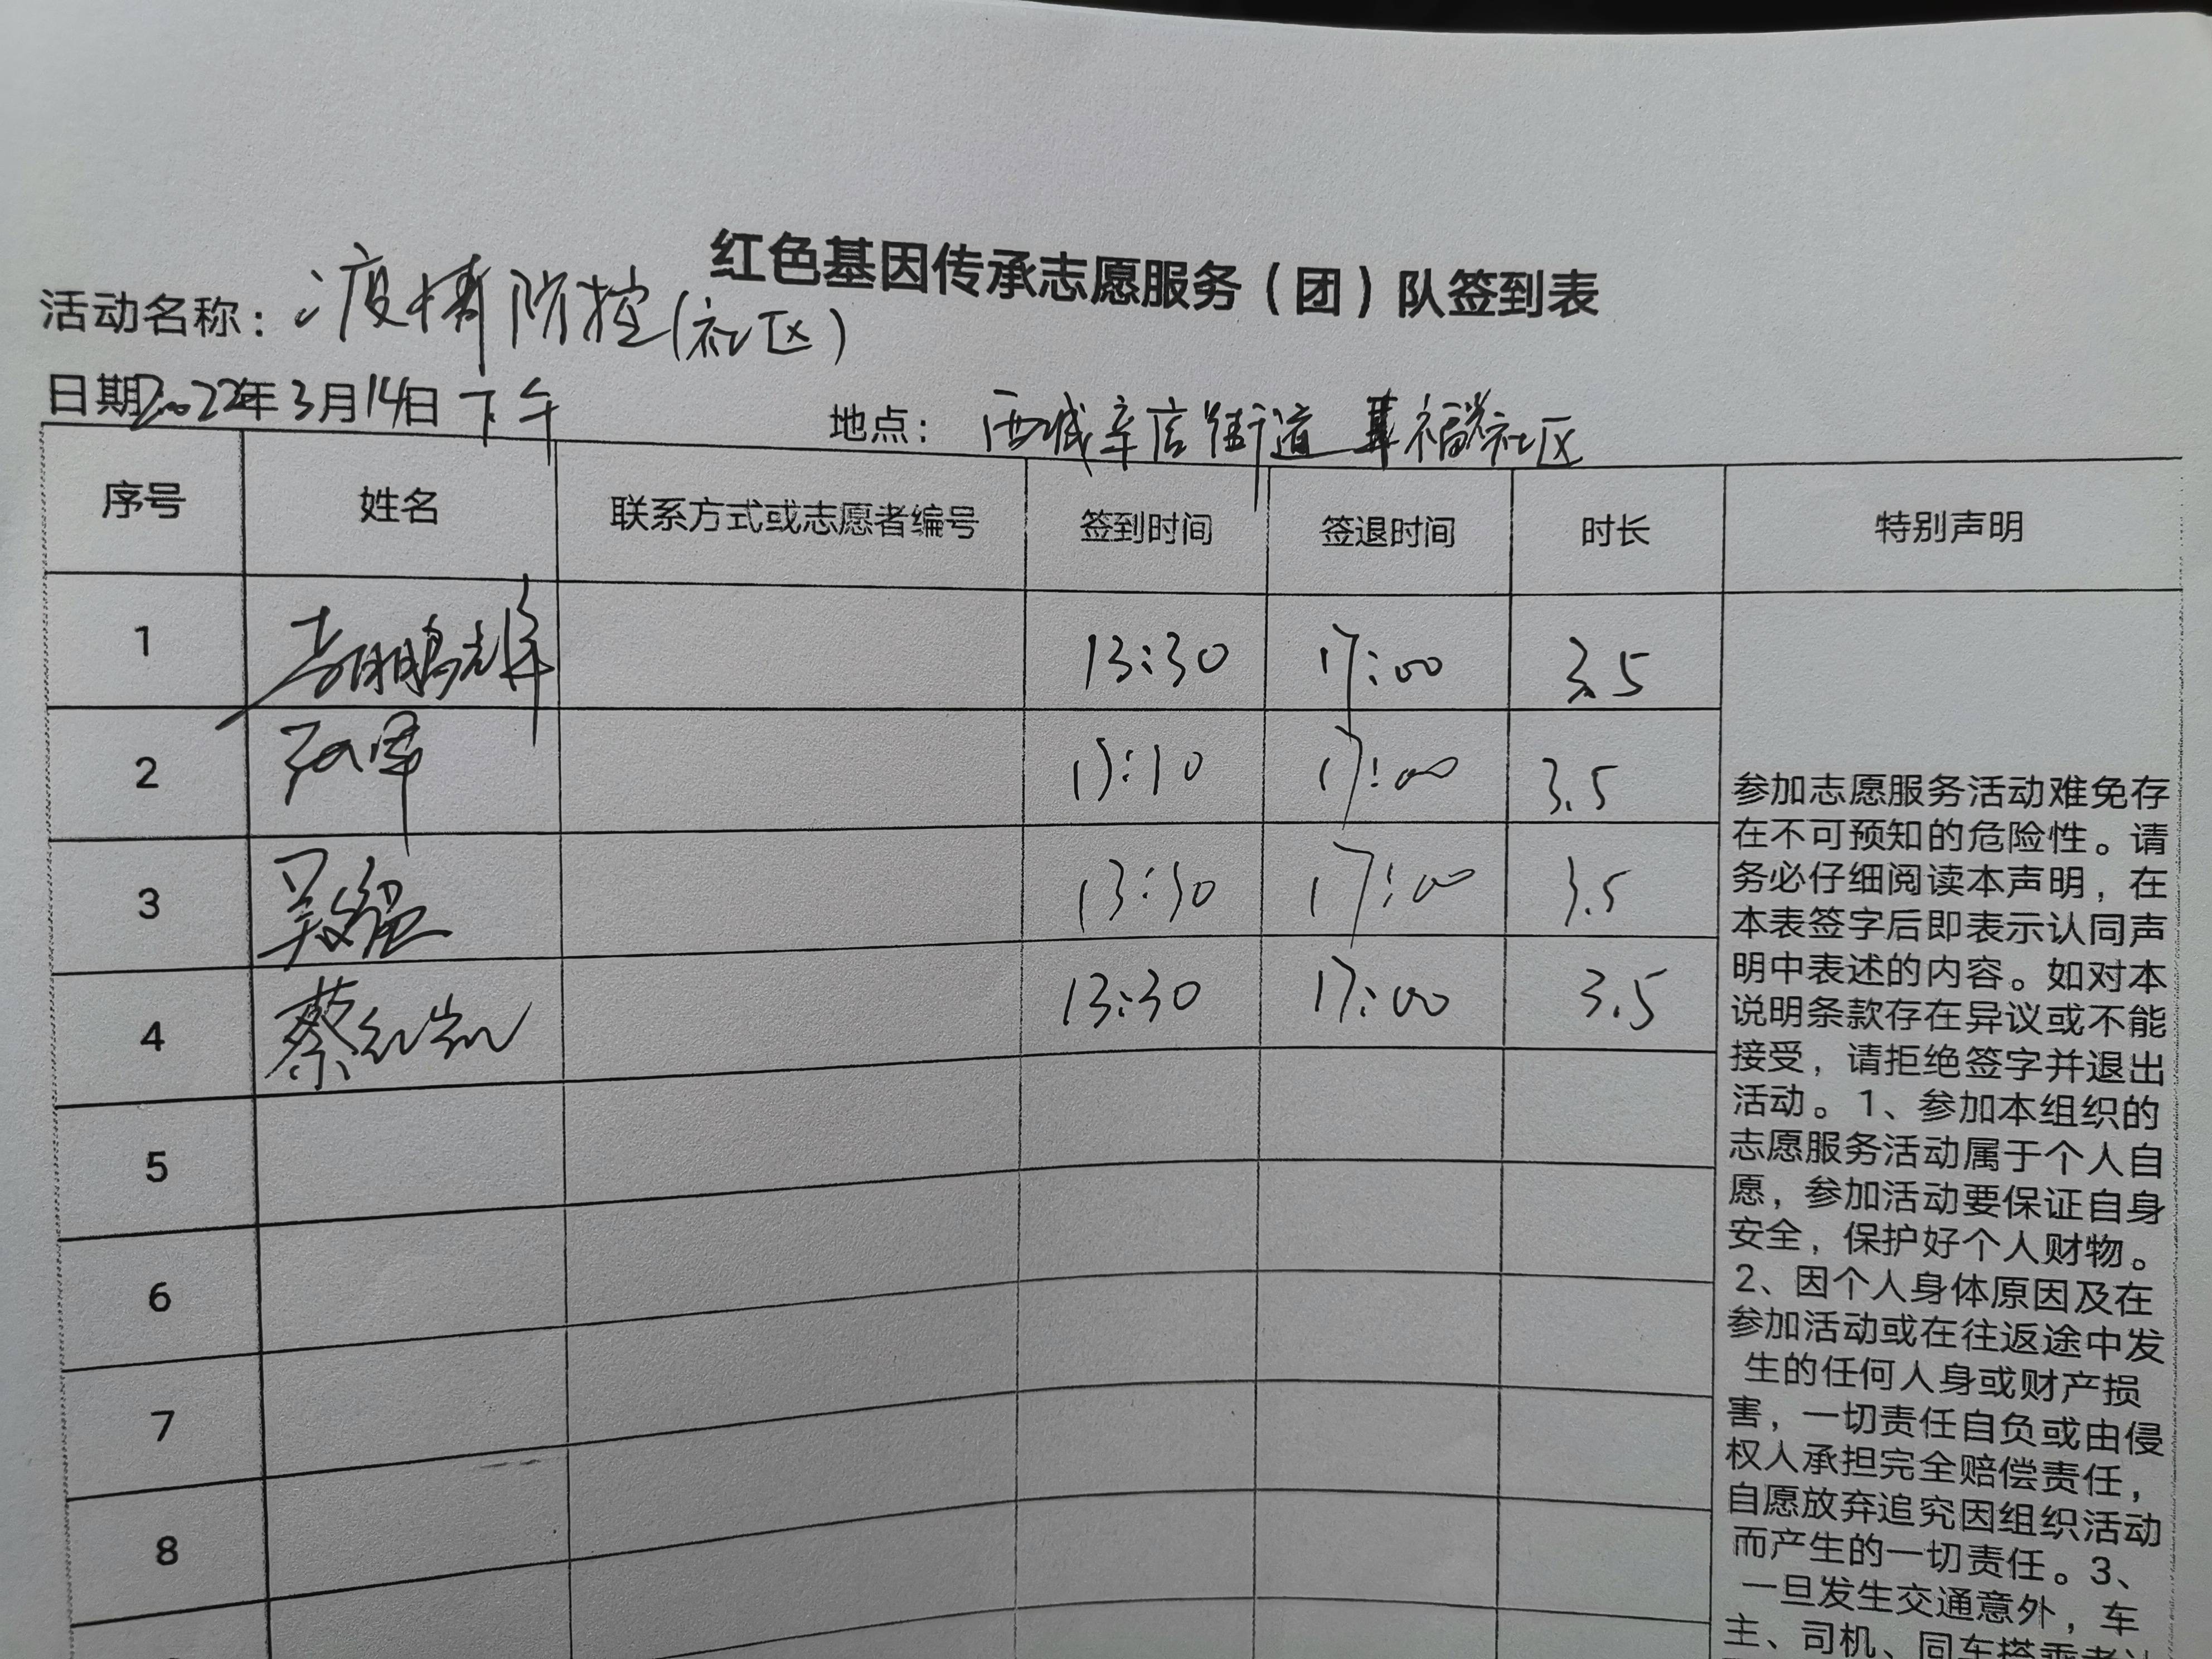 红色基因传承志愿服务（团）队签到表
活动名称：疫情防控（社区）
日期2022年3月14日下午
地点：西城辛店街道 福 社区
序号 姓名 联系方式或志愿者编号 签到时间 签退时间 时长 特别声明
1 13:30 17:00 3.5
2 17:00 3.5
3 13:30 17:00 3.5
4 蔡 13:30 17:00 3.5
5
6
7
8
参加志愿服务活动难免存
在不可预知的危险性。请
务必仔细阅读本声明，在
本表签字后即表示认同声
明中表述的内容。如对本
说明条款存在异议或不能
接受，请拒绝签字并退出
活动。1、参加本组织的
志愿服务活动属于个人自
愿，参加活动要保证自身
安全，保护好个人财物。
2、因个人身体原因及在
参加活动或在往返途中发
生的任何人身或财产损
害，一切责任自负或由侵
权人承担完全赔偿责任，
自愿放弃追究因组织活动
而产生的一切责任。3、
一旦发生交通意外，车
主、司机、同车搭乘者